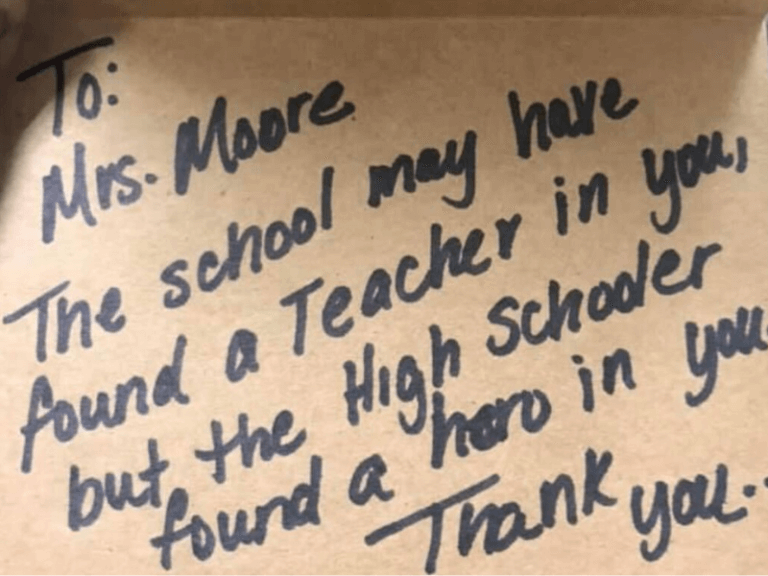 To:
Mrs. Moore
The school may have
found a Teacher in you,
but the High Schooler
found a hero in you.
Thank you..